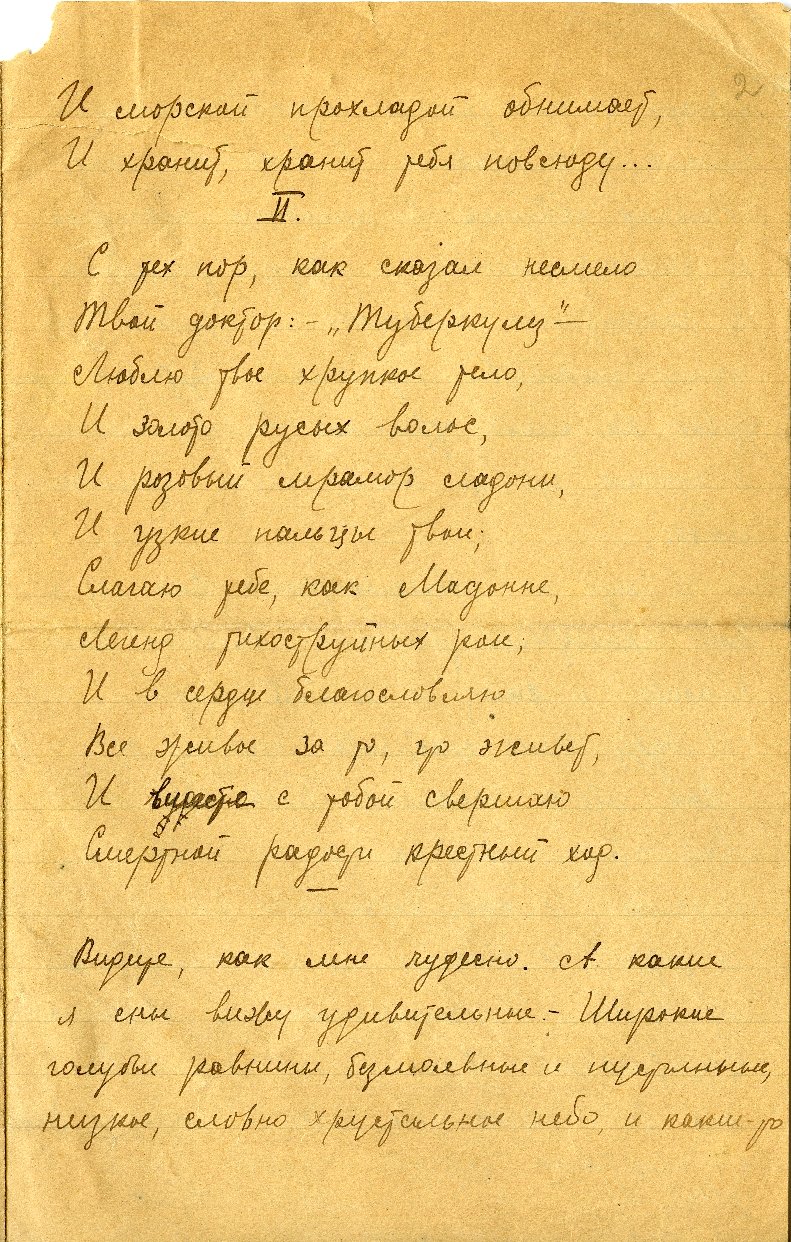 2
И морской прохладой обнимает,
И хранит, хранит тебя повсюду...
II.
С тех пор, как сказал несмело
Твой доктор: – „Туберкулез" –
Люблю твое хрупкое тело,
И золото русых волос,
И розовый мрамор ладони,
И узкие пальцы твои;
Слагаю тебе, как Мадонне,
Легенд тихоструйных рои;
И в сердце благословляю
Все живое за то, что живет,
И вместе с тобой свершаю
Смертной радости крестный ход.
Видите, как мне чудесно. А какие
я сны вижу удивительные. – Широкие
голубые равнины, безмолвные и пустынные,
низкое, словно хрустальное небо, и какие-то